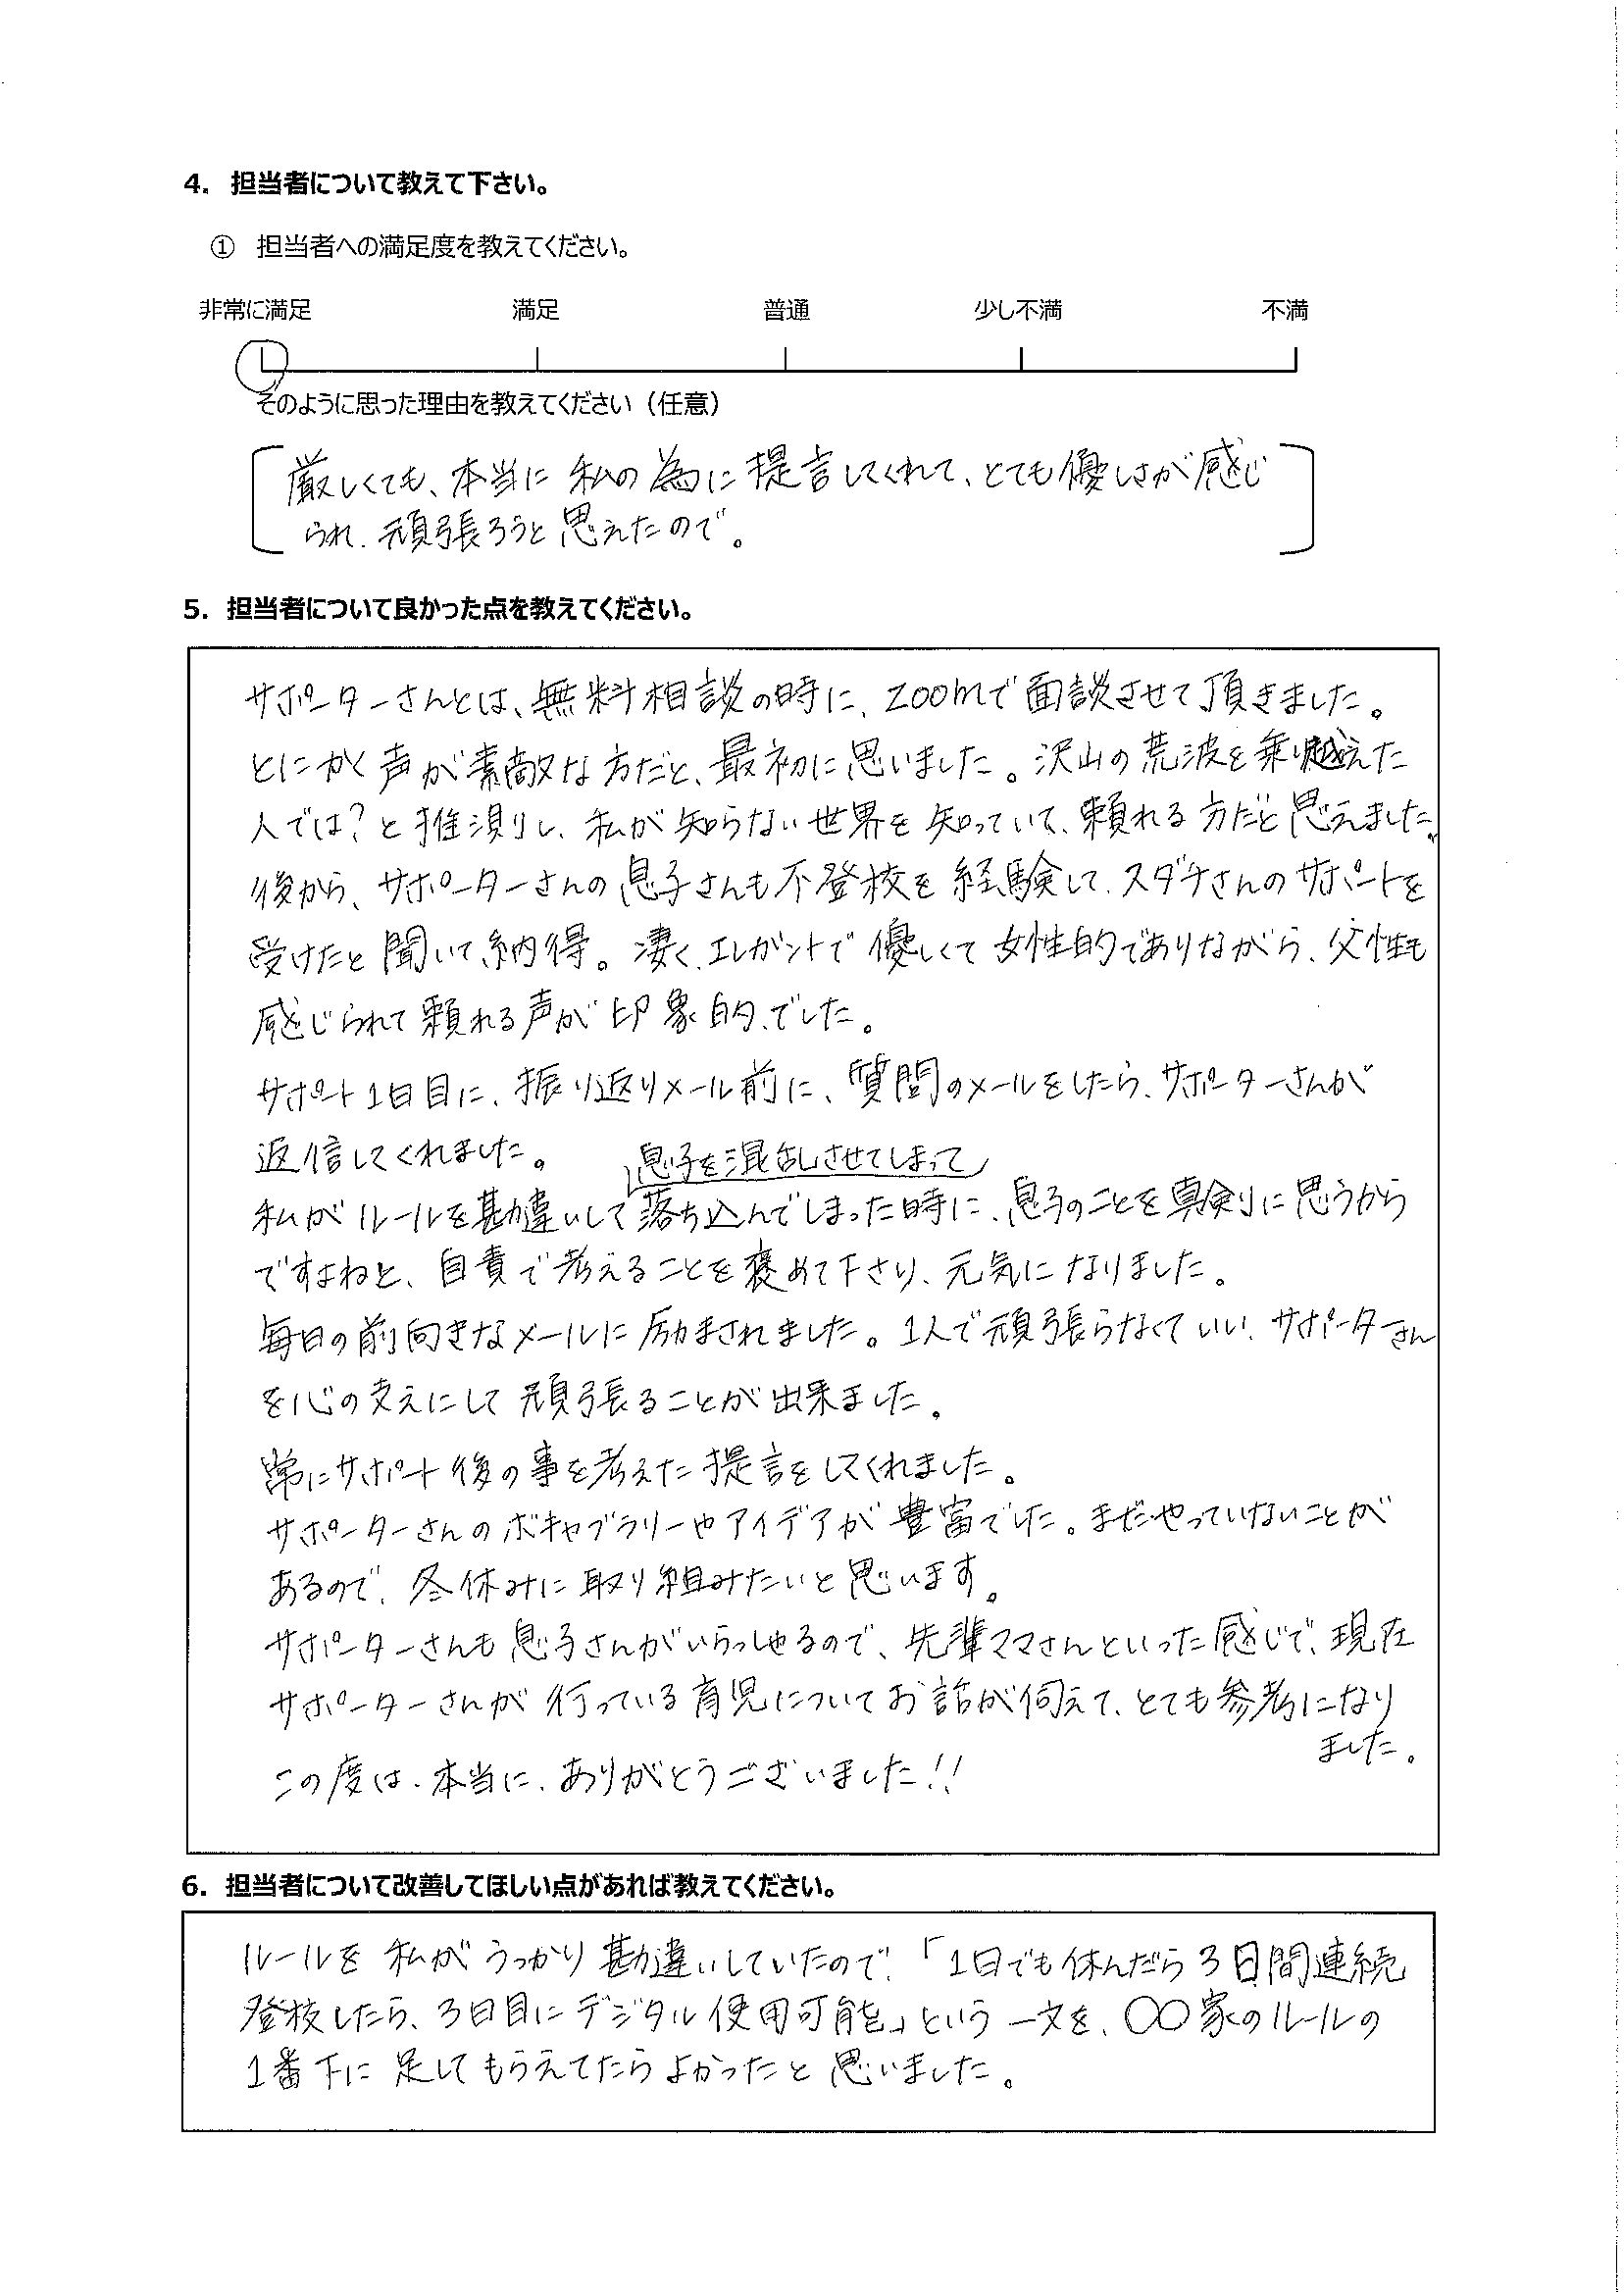 4. 担当者について教えて下さい。
① 担当者への満足度を教えてください。
非常に満足 満足 普通 少し不満 不満
そのように思った理由を教えてください（任意）
厳しくても、本当に私の為に提言してくれて、とても優しさが感じ
られ、頑張ろうと思えたので。
5. 担当者について良かった点を教えてください。
サポーターさんとは、無料相談の時に、zoomで面談させて頂きました。
とにかく声が素敵な方だと、最初に思いました。沢山の荒波を乗り越えた
人では?と推測し、私が知らない世界を知っていて、頼れる方だと思えました。
後から、サポーターさんの息子さんも不登校を経験して、スダチさんのサポートを
受けたと聞いて、納得。凄く、エレガントで優しくて女性的でありながら、父性も
感じられて頼れる声が印象的でした。
サポート1日目に、振り返りメール前に、質問のメールをしたら、サポーターさんが
返信してくれました。
息子を混乱させてしまって
私がルールを勘違いして落ち込んでしまった時に、息子のことを真剣に思うから
ですよねと、自責で考えることを褒めて下さり、元気になりました。
毎日の前向きなメールに励まされました。1人で頑張らなくていい、サポーターさん
を心の支えにして頑張ることが出来ました。
常にサポート後の事を考えた提言をしてくれました。
サポーターさんのボキャブラリーやアイデアが豊富でした。まだやっていないことが
あるので、冬休みに取り組みたいと思います。
サポーターさんも息子さんがいらっしゃるので、先輩ママさんといった感じで、現在
サポーターさんが行っている育児についてお話が伺えて、とても参考になり
ました。
この度は、本当に、ありがとうございました!!
6. 担当者について改善してほしい点があれば教えてください。
ルールを私がうっかり勘違いしていたので、「1日でも休んだら3日間連続
登校したら、3日目にデジタル使用可能」という一文を、〇〇家のルールの
1番下に足してもらえてたらよかったと思いました。